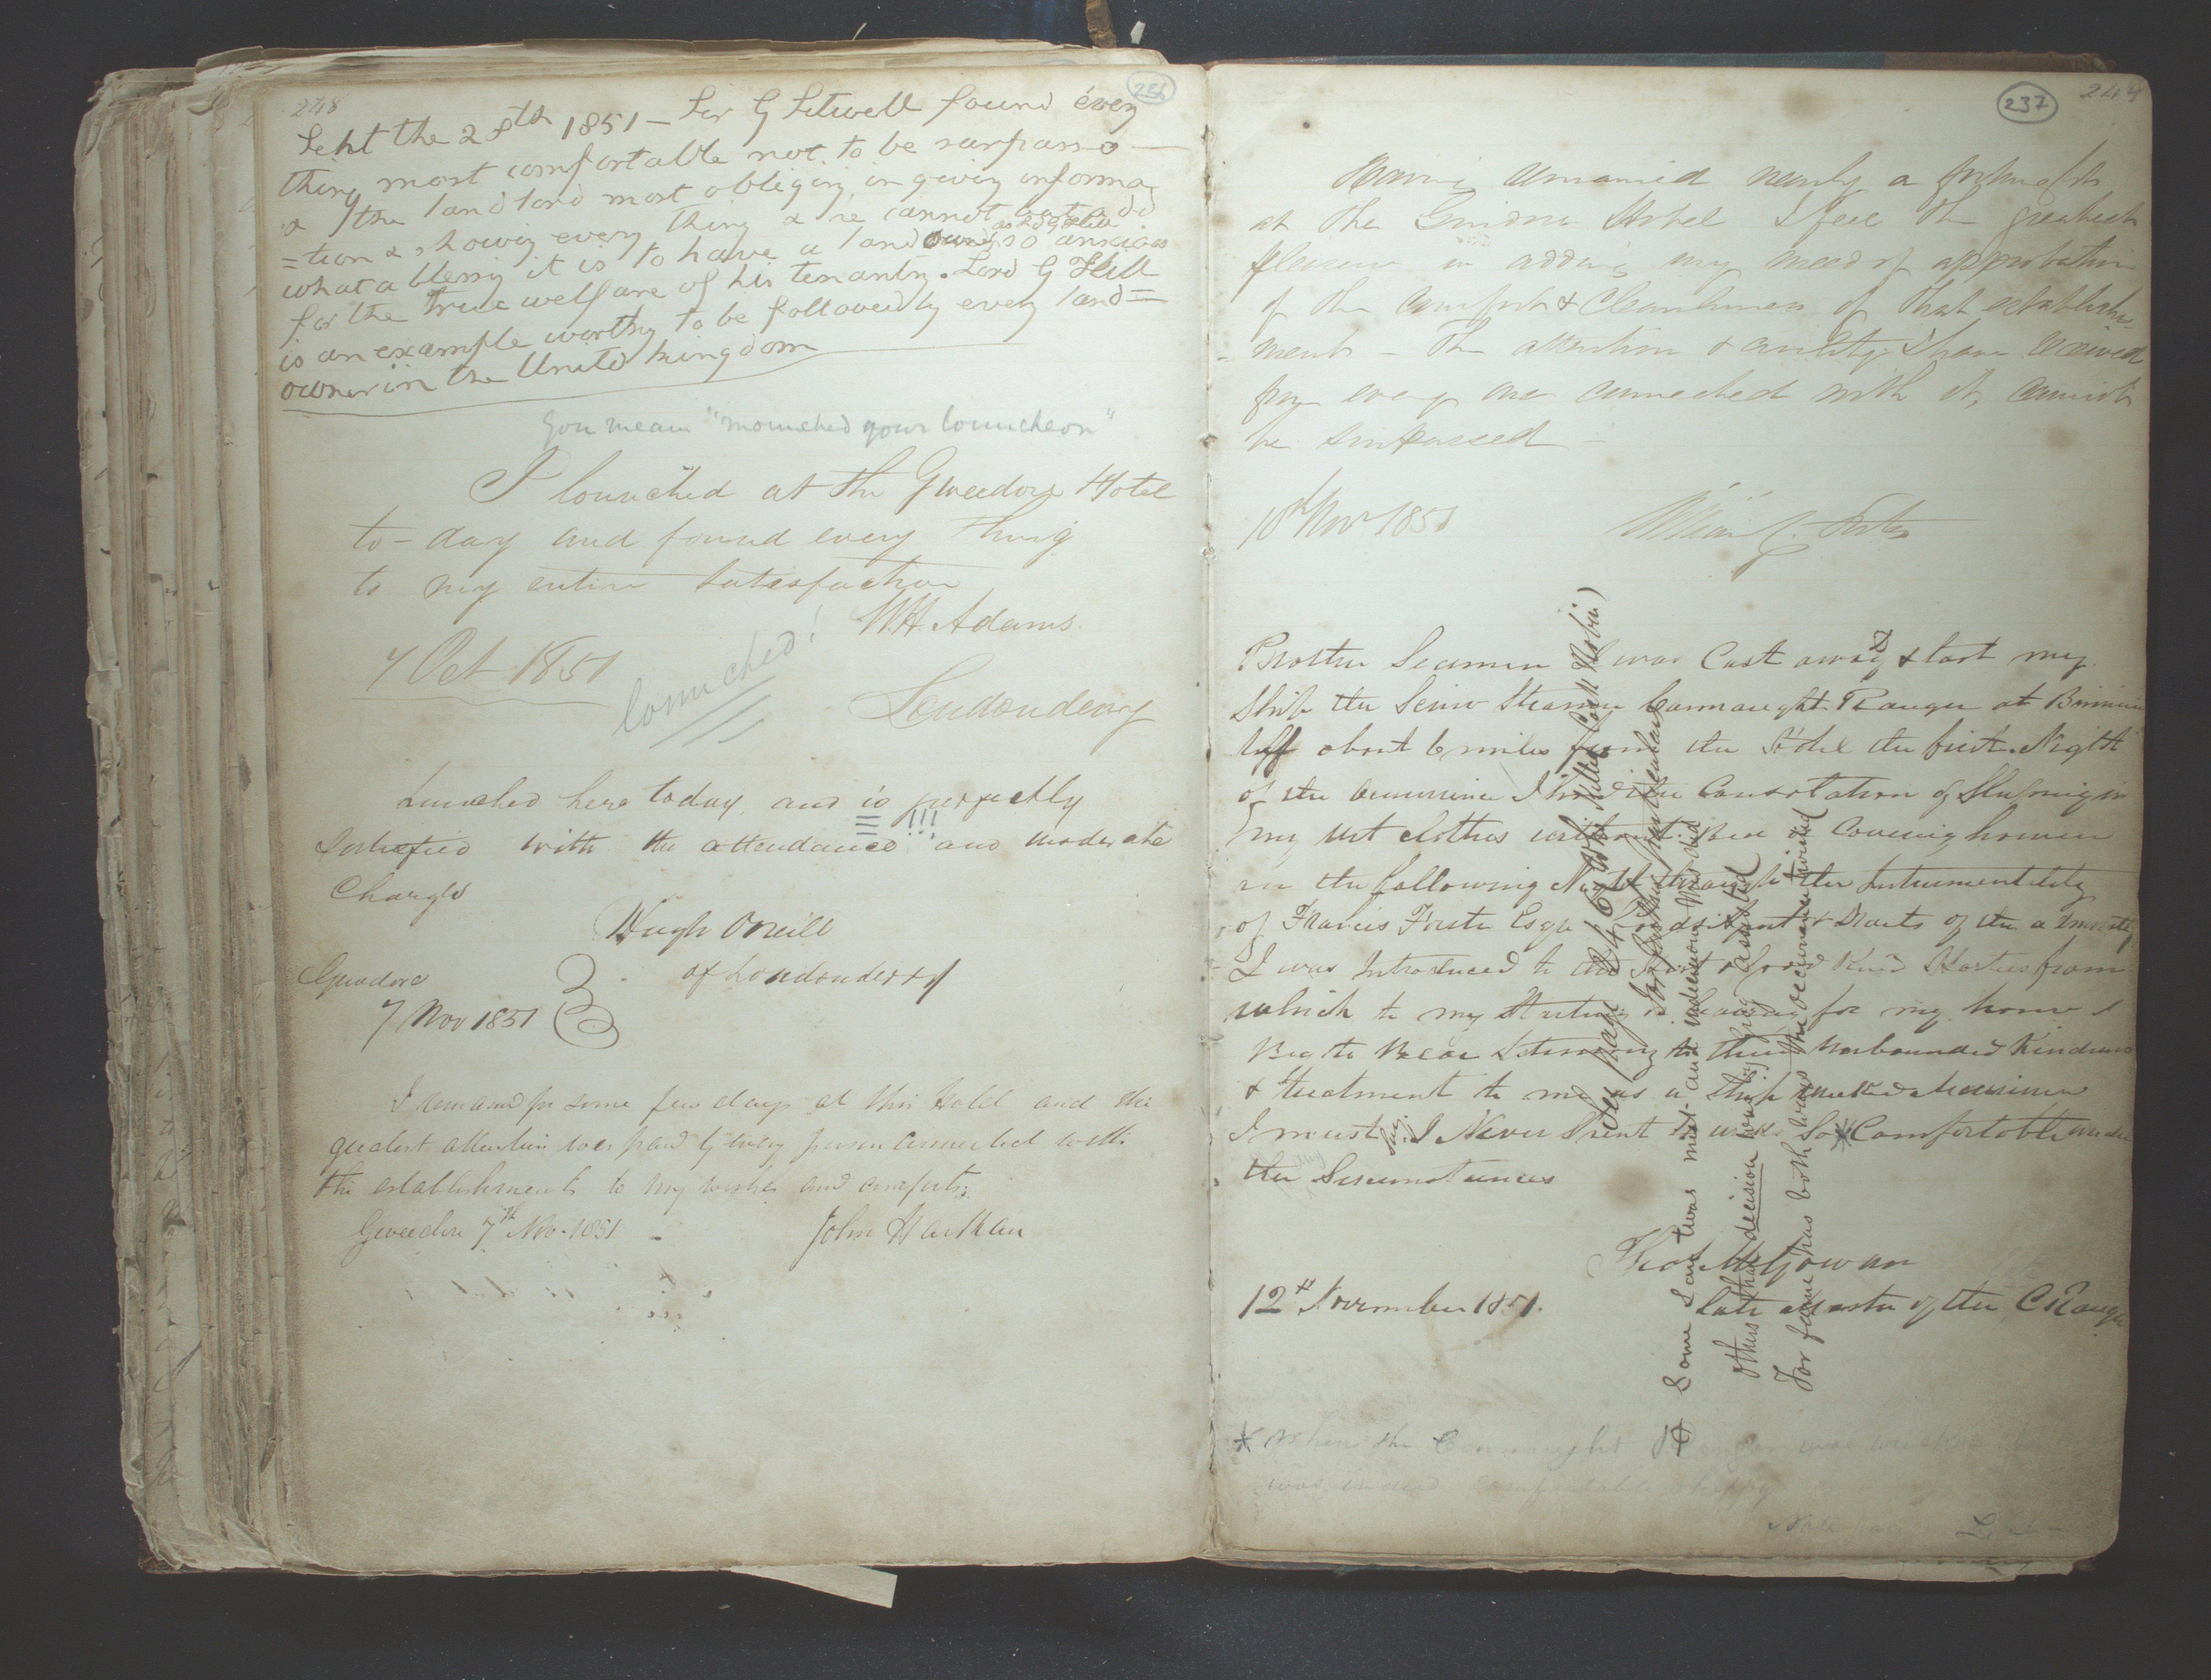 248
236
Sept the 28th 1851 – Sir G Sitwell found every
thing most comfortable not to be surpassed
& the landlord most obliging in giving informa
=tion & showing every thing & he cannot but add
what a blessing it is to have a landowner so anxious
for the true welfare of his tenantry. Lord G Hill
is an example worthy to be followed by every land=
owner in the United Kingdom
You mean "mounched your louncheon"
I lounched at the Gweedore Hotel
to-day and found every thing
to my entire satisfaction
W.H. Adams.
7 Oct. 1851
lounched!
Londonderry
Lunched here today, and is perfectly
Satisfied with the attendance and moderate
Charges
Hugh ONeill
Gweedore
of Londonderry
7 Nov 1851
I remained for some few days at this Hotel and the
greatest attention was paid by every person connected with
this establishment to my wishes and comforts.
Gweedore 7th Nov. 1851
John
237
244
Having remained nearly a fortnight
at the Gweedore Hotel I feel the greatest
pleasure in adding my meed of approbation
of the comfort & cleanliness of that establish-
-ment – the attention & civility I have received
from every one connected with it, cannot
be surpassed
10th Nov 1851
William J. Foster
Brother Seamen I was Cast away & lost my
Ship the Screw Steamer Connaught Ranger at
about 6 miles from the Hotel the first Night
of the I had the Consolation of Sleeping in
my wet clothes without Bed or Covering however
on the following Night through the Instrumentality
of Francis Forster Esqr
I was Introduced to the Good Kind Hostess from
which to my Starting or leaving for my home I
Beg to Bear testimony to their Unbounded Kindness
& treatment to me as a Ship wrecked Mariner
I must say I Never Spent a week So Comfortable under
the Circumstances
Thos McGowan
12th November 1851.
late Master of the C Ranger
See page 246 (Who killed Cock Robin)
for further particulars
Some said 'twas mist and indecision that did
others that decision
For fame has both ways the occurrence twisted
* When the Connaught Ranger was
was indeed comfortable & happy